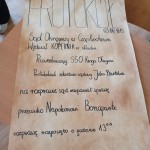 PROTOKÓŁ
Sąd Okręgowy w Częstochowie
Wydział KOMINKA w składzie
Przewodniczący SSO Kinga
Protokolant sekretarz sądowy
na rozprawie sąd rozpoznał sprawę
przeciwko Napoleonowi Bonaparte
rozprawę rozpoczęto o godzinie 13⁰⁰